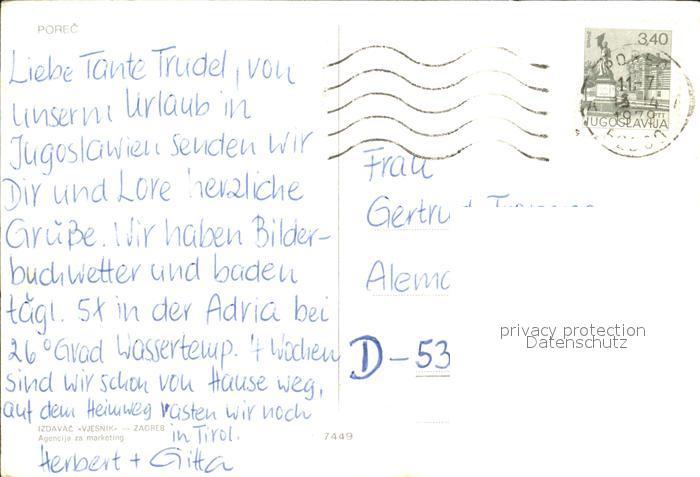 POREČ
Liebe Tante Trudel, von
unserm Urlaub in
Jugoslawien senden wir
Dir und Lore herzliche
Grüße. Wir haben Bilder-
buchwetter und baden
tägl. 5x in der Adria bei
26° Grad Wassertemp. 4 Wochen
sind wir schon von Hause weg,
auf dem Heimweg rasten wir noch
in Tirol.
Herbert + Gitta
IZDAVAČ «VJESNIK» — ZAGREB
Agencija za marketing
7449
3,40
JUGOSLAVIJA
11.7.
1979
Frau
Gertrud
D-53
privacy protection
Datenschutz